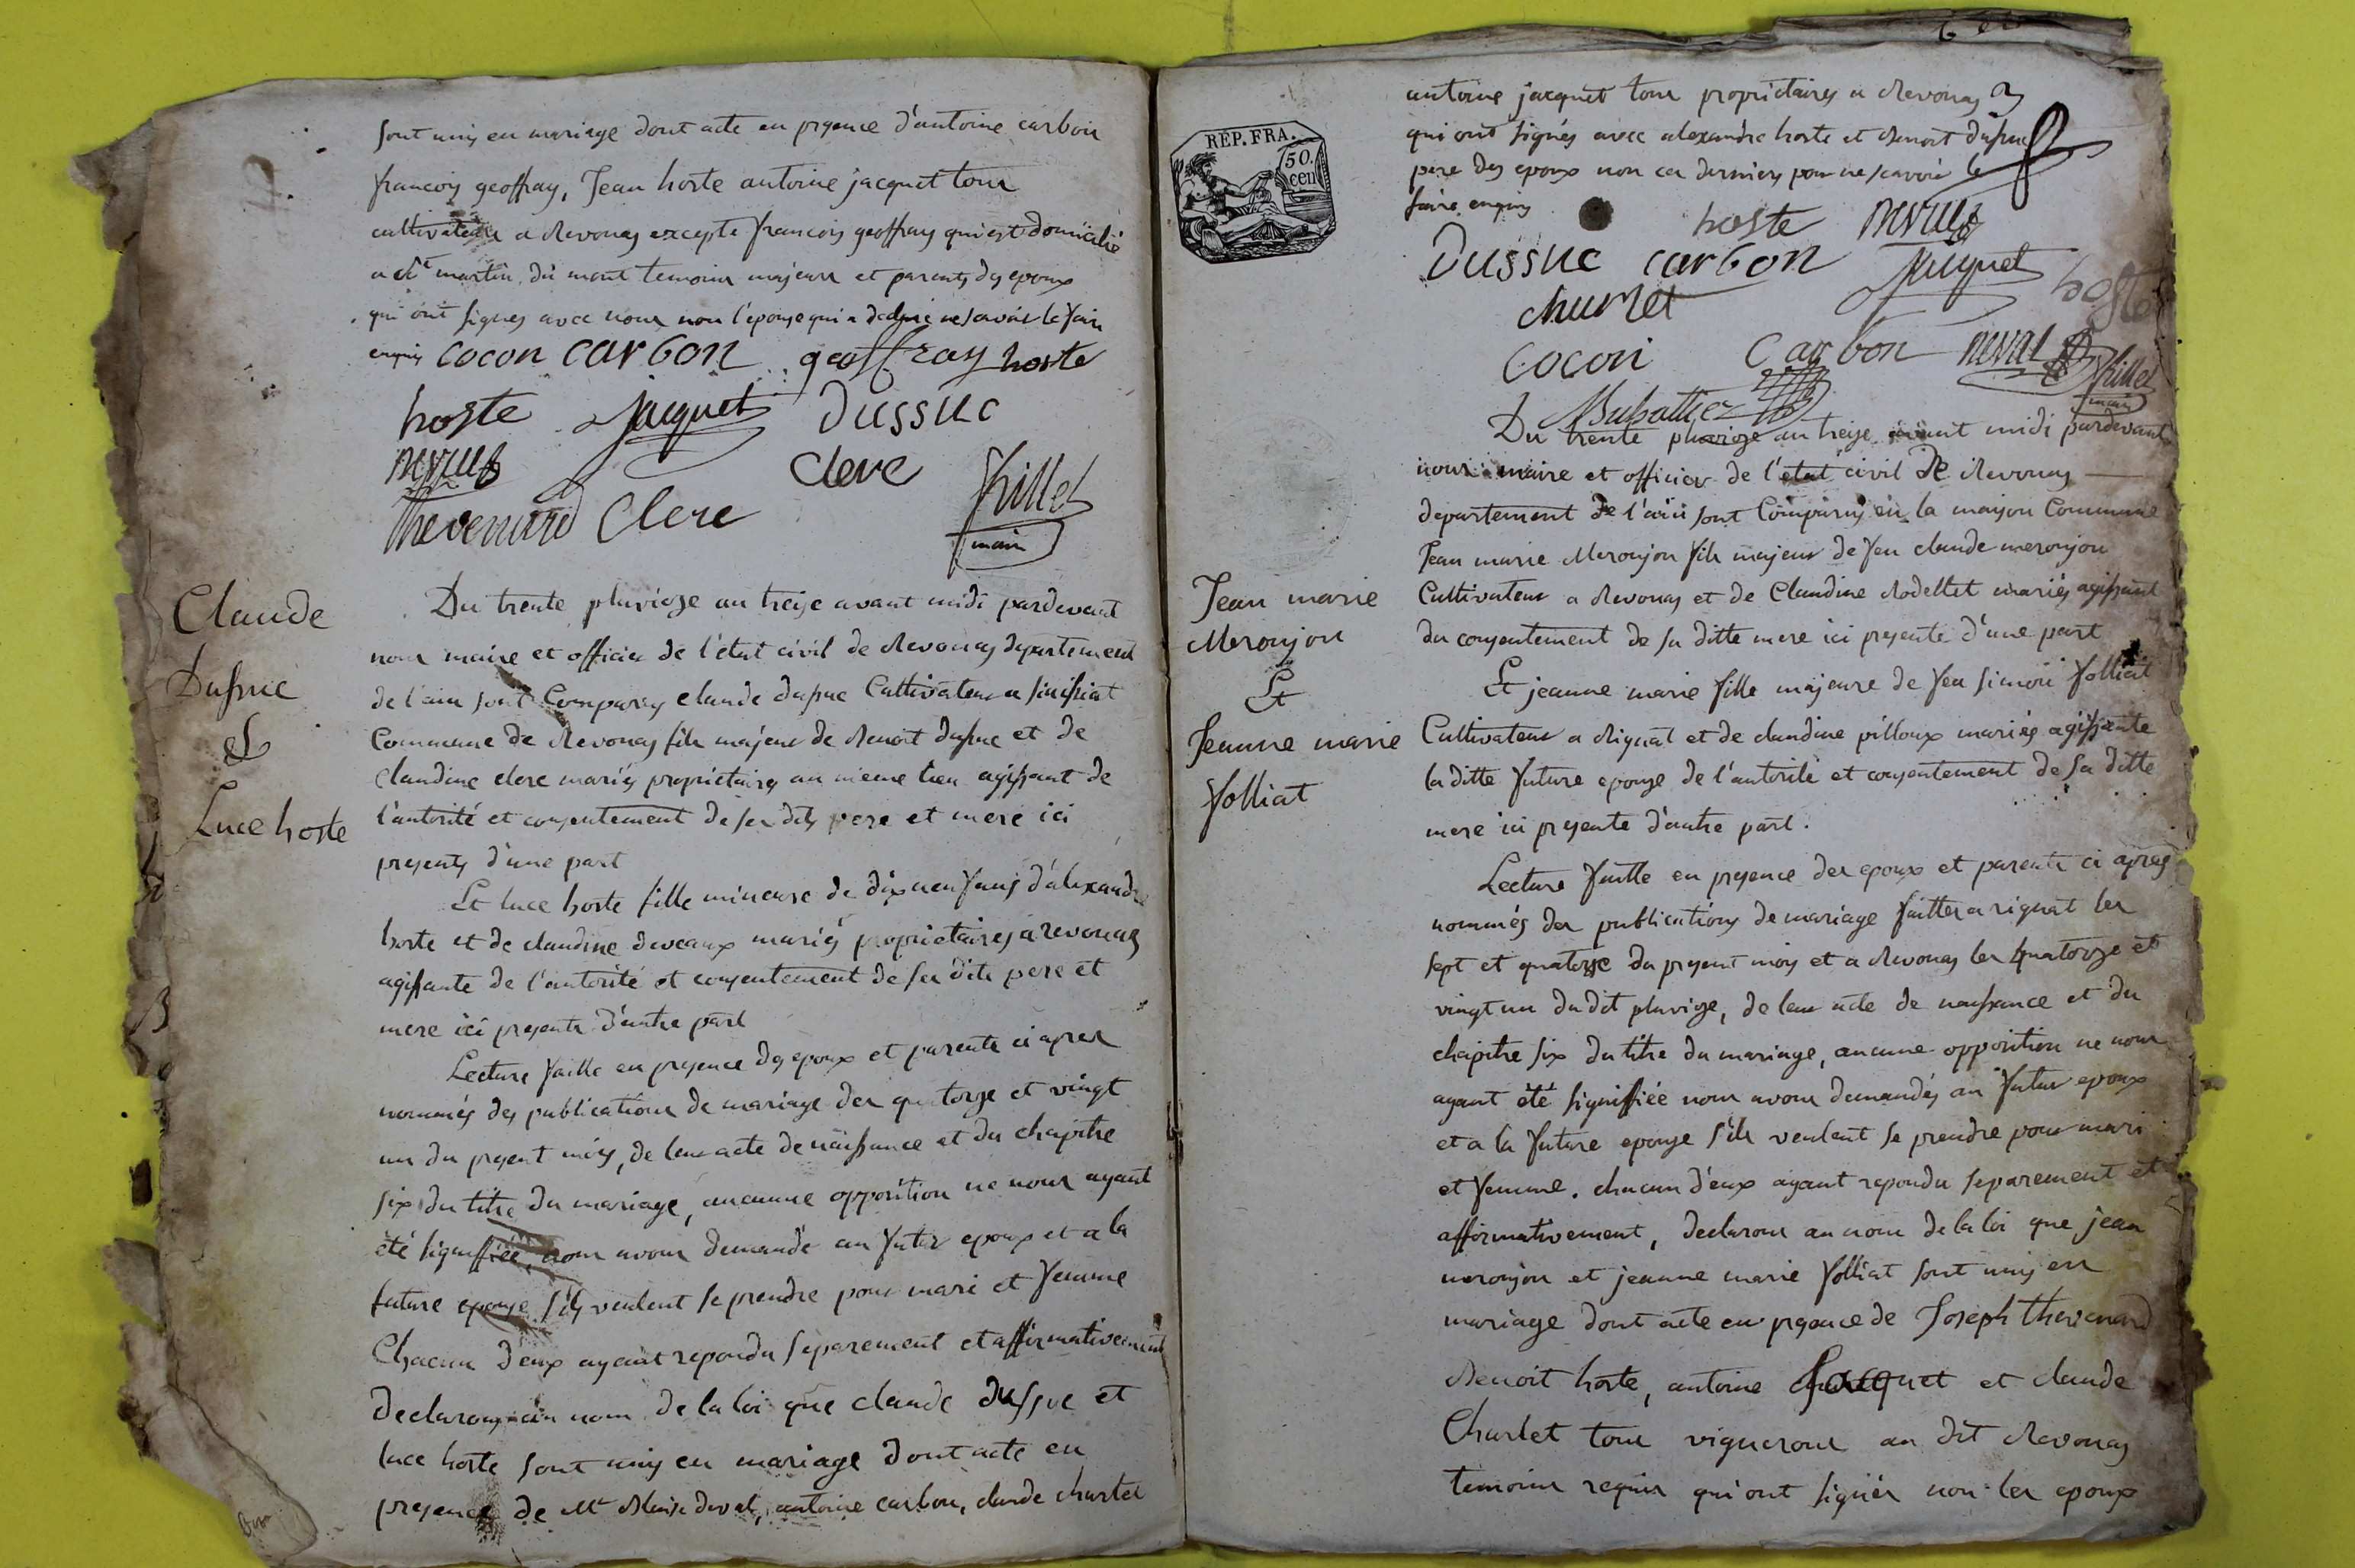 sont unis en mariage dont acte en presence d'antoine carbon
francois geoffray, Jean hoste antoine jacquet tous
cultivateurs a Revonas excepté francois geoffray qui est domicilié
a St martin du mont temoins majeurs et parents des epoux
qui ont signes avec nous non l'epouse qui a declaré ne savoir le faire
cocon carbon geoffray hoste
hoste jacquet Dussuc
clere
thevenard Clere
maire
Claude
Dussuc
&
Luce hoste
Du trente pluviose an treize avant midi pardevant
nous maire et officier de l'état civil de Revonas departement
de l'ain sont Comparus claude dussuc Cultivateur a
Commune de Revonas fils majeur de Benoit dussuc et de
Claudine clere mariés proprietaires au meme lieu agissant de
l'autorité et consentement de ses dits pere et mere ici
presents d'une part
Et luce hoste fille mineure de dix neuf ans d'alexandre
hoste et de claudine deveaux mariés proprietaires a revonas
agissante de l'autorité et consentement de ses dits pere et
mere ici presents d'autre part
Lecture faitte en presence des epoux et parents ci apres
nommés des publications de mariage des quatorze et vingt
un du present mois, de leur acte de naissance et du chapitre
six du titre du mariage, aucune opposition ne nous ayant
été signiffiée, nous avons demandé au futur epoux et a la
future epouse s'ils veulent se prendre pour mari et femme
Chacun d'eux ayant repondu separement et affirmativement
Declarons au nom de la loi que claude dussuc et
luce hoste sont unis en mariage dont acte en
presence de Mr antoine carbon, claude charlet
REP. FRA.
50.
cen
antoine jacquet tous proprietaires a Revonas
qui ont signés avec alexandre hoste et Benoit dussuc
pere des epoux non ces derniers pour ne scavoir le
faire enquis
hoste
Dussuc carbon jacquet hoste
charlet
Cocon Carbon
maire
Du trente pluviose an treize avant midi pardevant
nous maire et officier de l'etat civil de Revonas
departement de l'ain sont Comparus en la maison Commune
Jean marie Meronjon fils majeur de feu claude meronjon
Cultivateur a Revonas et de Claudine Rodettet mariés agissant
du consentement de sa ditte mere ici presente d'une part
Jean marie
Meronjon
Et
Jeanne marie
folliat
Et jeanne marie fille majeure de feu simon folliat
Cultivateur a Rignat et de claudine pilloux mariés agissante
la ditte future epouse de l'autorité et consentement de sa ditte
mere ici presente d'autre part.
Lecture faitte en presence des epoux et parents ci apres
nommés des publications de mariage faittes a rignat les
sept et quatorze du present mois et a Revonas les quatorze et
vingt un du dit pluviose, de leur acte de naissance et du
chapitre six du titre du mariage, aucune opposition ne nous
ayant été signiffiée nous avons demandés au futur epoux
et a la future epouse s'ils veulent se prendre pour mari
et femme. chacun d'eux ayant repondu separement et
affirmativement, declarons au nom de la loi que jean
meronjon et jeanne marie folliat sont unis en
mariage dont acte en presence de Joseph thevenard
Benoit hoste, antoine Jacquet et claude
Charlet tous vignerons au dit Revonas
temoins requis qui ont signés non les epoux